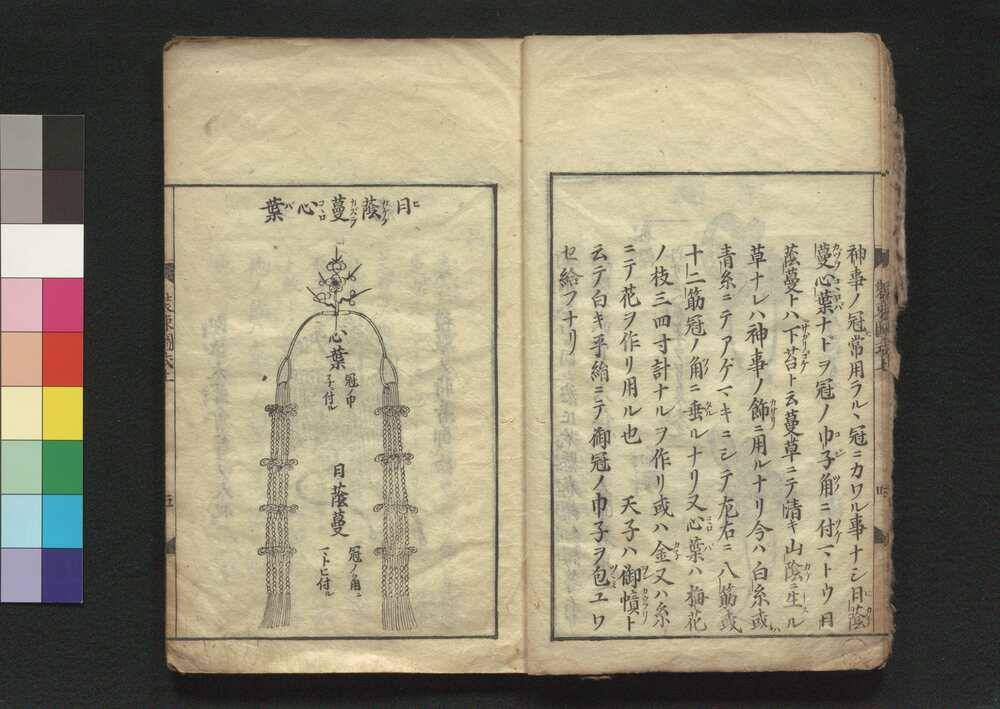 神事ノ冠常用ラルヽ冠ニカワル事ナシ日蔭
蔓心葉ナドヲ冠ノ巾子角ニ付マトウ日
蔭蔓トハ下苔ト云蔓草ニテ清キ山陰ニ生ル
草ナレハ神事ノ飾ニ用ルナリ今ハ白糸或
青糸ニテアゲマキニシテ左右ニ八筋或
十二筋冠ノ角ニ垂ルナリ又心葉ハ梅花
ノ枝三四寸計ナルヲ作リ或ハ金又ハ糸
ニテ花ヲ作リ用ル也 天子ハ御幘ト
云テ白キ平絹ニテ御冠ノ巾子ヲ包ユワ
セ給フナリ
日蔭蔓心葉
心葉
冠ノ巾
子ニ付ル
日蔭蔓
冠ノ角ニ
マトヒ付ル